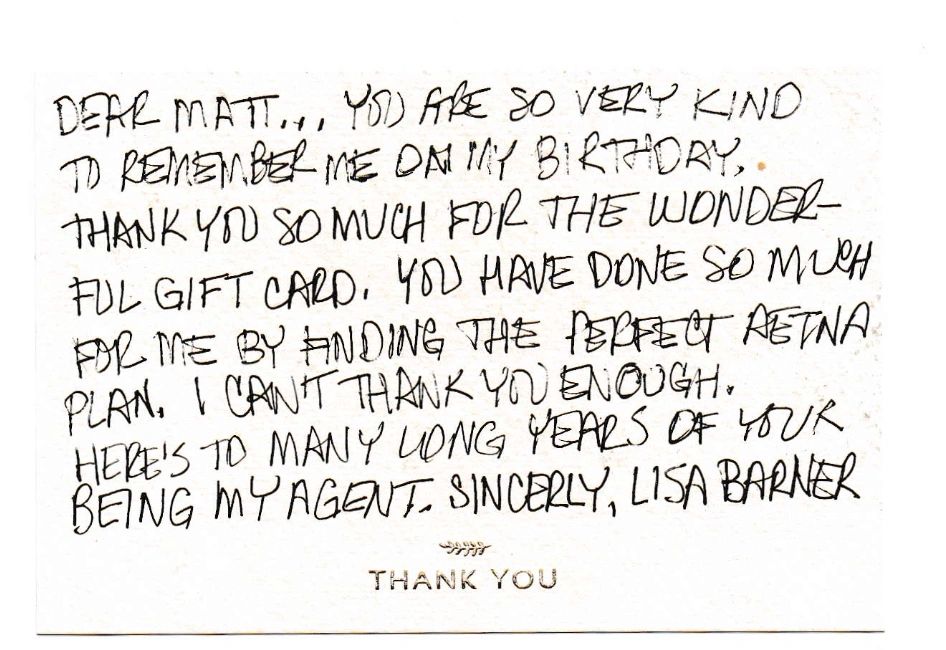 DEAR MATT... YOU ARE SO VERY KIND
TO REMEMBER ME ON MY BIRTHDAY.
THANK YOU SO MUCH FOR THE WONDER-
FUL GIFT CARD. YOU HAVE DONE SO MUCH
FOR ME BY FINDING THE PERFECT AETNA
PLAN. I CAN'T THANK YOU ENOUGH.
HERE'S TO MANY LONG YEARS OF YOUR
BEING MY AGENT. SINCERLY, LISA BARNER
THANK YOU